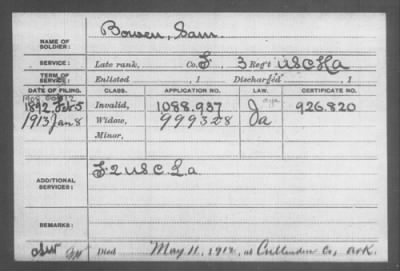 NAME OF SOLDIER: Bowen, Sam.
SERVICE: Late rank, Co. I, 3 Reg't U.S.C.H.a
TERM OF SERVICE: Enlisted , 1 Discharged , 1
DATE OF FILING. CLASS. APPLICATION NO. LAW. CERTIFICATE NO.
1892 Feb 5 Invalid, 1088.937 926.820
1913 Jan 8 Widow, 999328
Minor,
ADDITIONAL SERVICES: I 2 U S C L a
REMARKS:
Died May 11, 1912, at Crittenden Co, Ark.